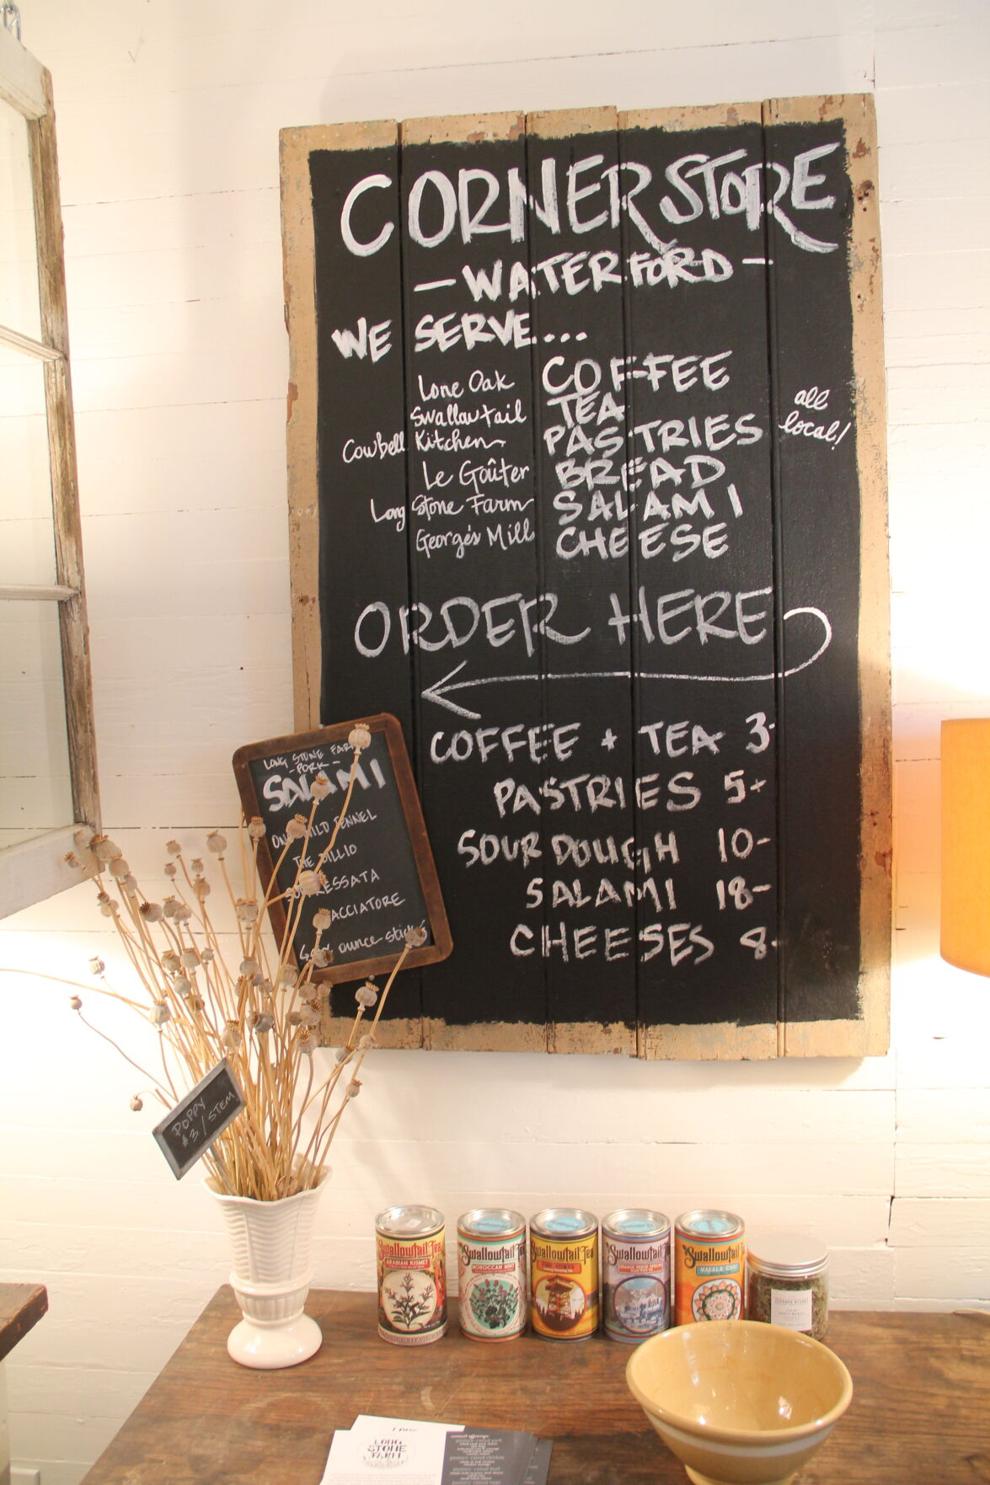 CORNERSTORE
- WATERFORD -
WE SERVE...
Lone Oak COFFEE
Swallowtail TEA
Cowbell Kitchen PASTRIES
Le Goûter BREAD
Long Stone Farm SALAMI
George's Mill CHEESE
all
local!
ORDER HERE
COFFEE + TEA 3-
PASTRIES 5+
SOURDOUGH 10-
SALAMI 18-
CHEESES 8-
LONG STONE FARM
- PORK -
SALAMI
WILD FENNEL
THE
ounce-sticks
POPPY
$3/STEM
Swallowtail Tea
ARABIAN KISMET
Swallowtail Tea
MOROCCAN MINT
Swallowtail Tea
Swallowtail Tea
Swallowtail Tea
MASALA CHAI
LONG
STONE
FARM